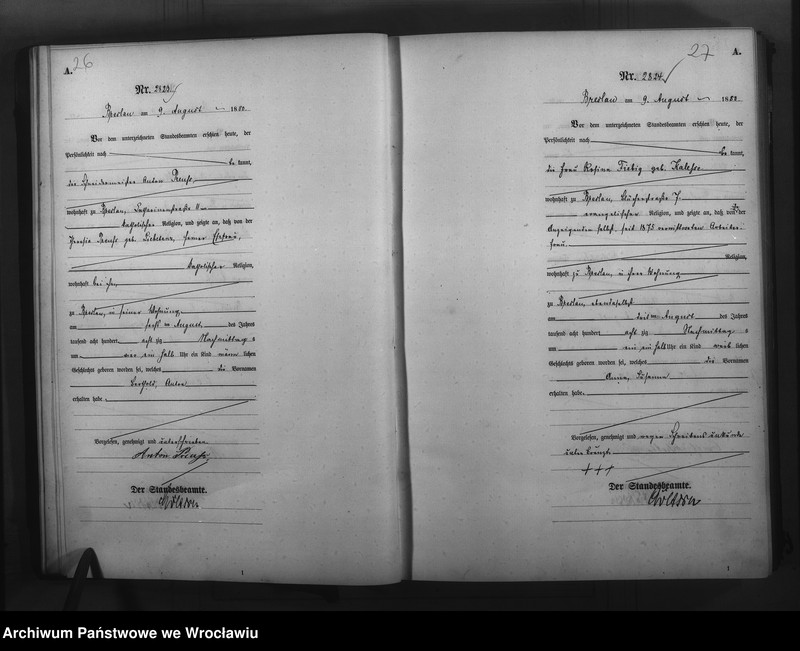 A. 26
Nr. 2823
Breslau am 9. August 1880
Vor dem unterzeichneten Standesbeamten erschien heute, der
Persönlichkeit nach
be kannt,
der Schneidermeister Anton
wohnhaft zu Breslau, 11
katholischer Religion, und zeigte an, daß von der
geb. seiner Ehefrau,
katholischer Religion,
wohnhaft bei ihm,
zu Breslau, in seiner Wohnung
am sechsten August des Jahres
tausend acht hundert acht zig Nachmittag s
um ein halb Uhr ein Kind männ lichen
Geschlechts geboren worden sei, welches die Vornamen
Berthold, Anton
erhalten habe.
Vorgelesen, genehmigt und unterschrieben
Anton
Der Standesbeamte.
1
27 A.
Nr. 2824
Breslau am 9. August 1880
Vor dem unterzeichneten Standesbeamten erschien heute, der
Persönlichkeit nach
be kannt,
die Frau Rosina Fiebig geb.
wohnhaft zu Breslau, 7
evangelischer Religion, und zeigte an, daß von der
Anzeigenden selbst, seit 1875 verwittweten Arbeiter-
frau
Religion,
wohnhaft zu Breslau, in ihrer Wohnung
zu Breslau, ebendaselbst
am August des Jahres
tausend acht hundert acht zig Nachmittag s
um ein halb Uhr ein Kind weib lichen
Geschlechts geboren worden sei, welches die Vornamen
Anna, Susanna
erhalten habe.
Vorgelesen, genehmigt und wegen Schreibens unkunde
unterkreuzt.
+++
Der Standesbeamte.
1
Archiwum Państwowe we Wrocławiu